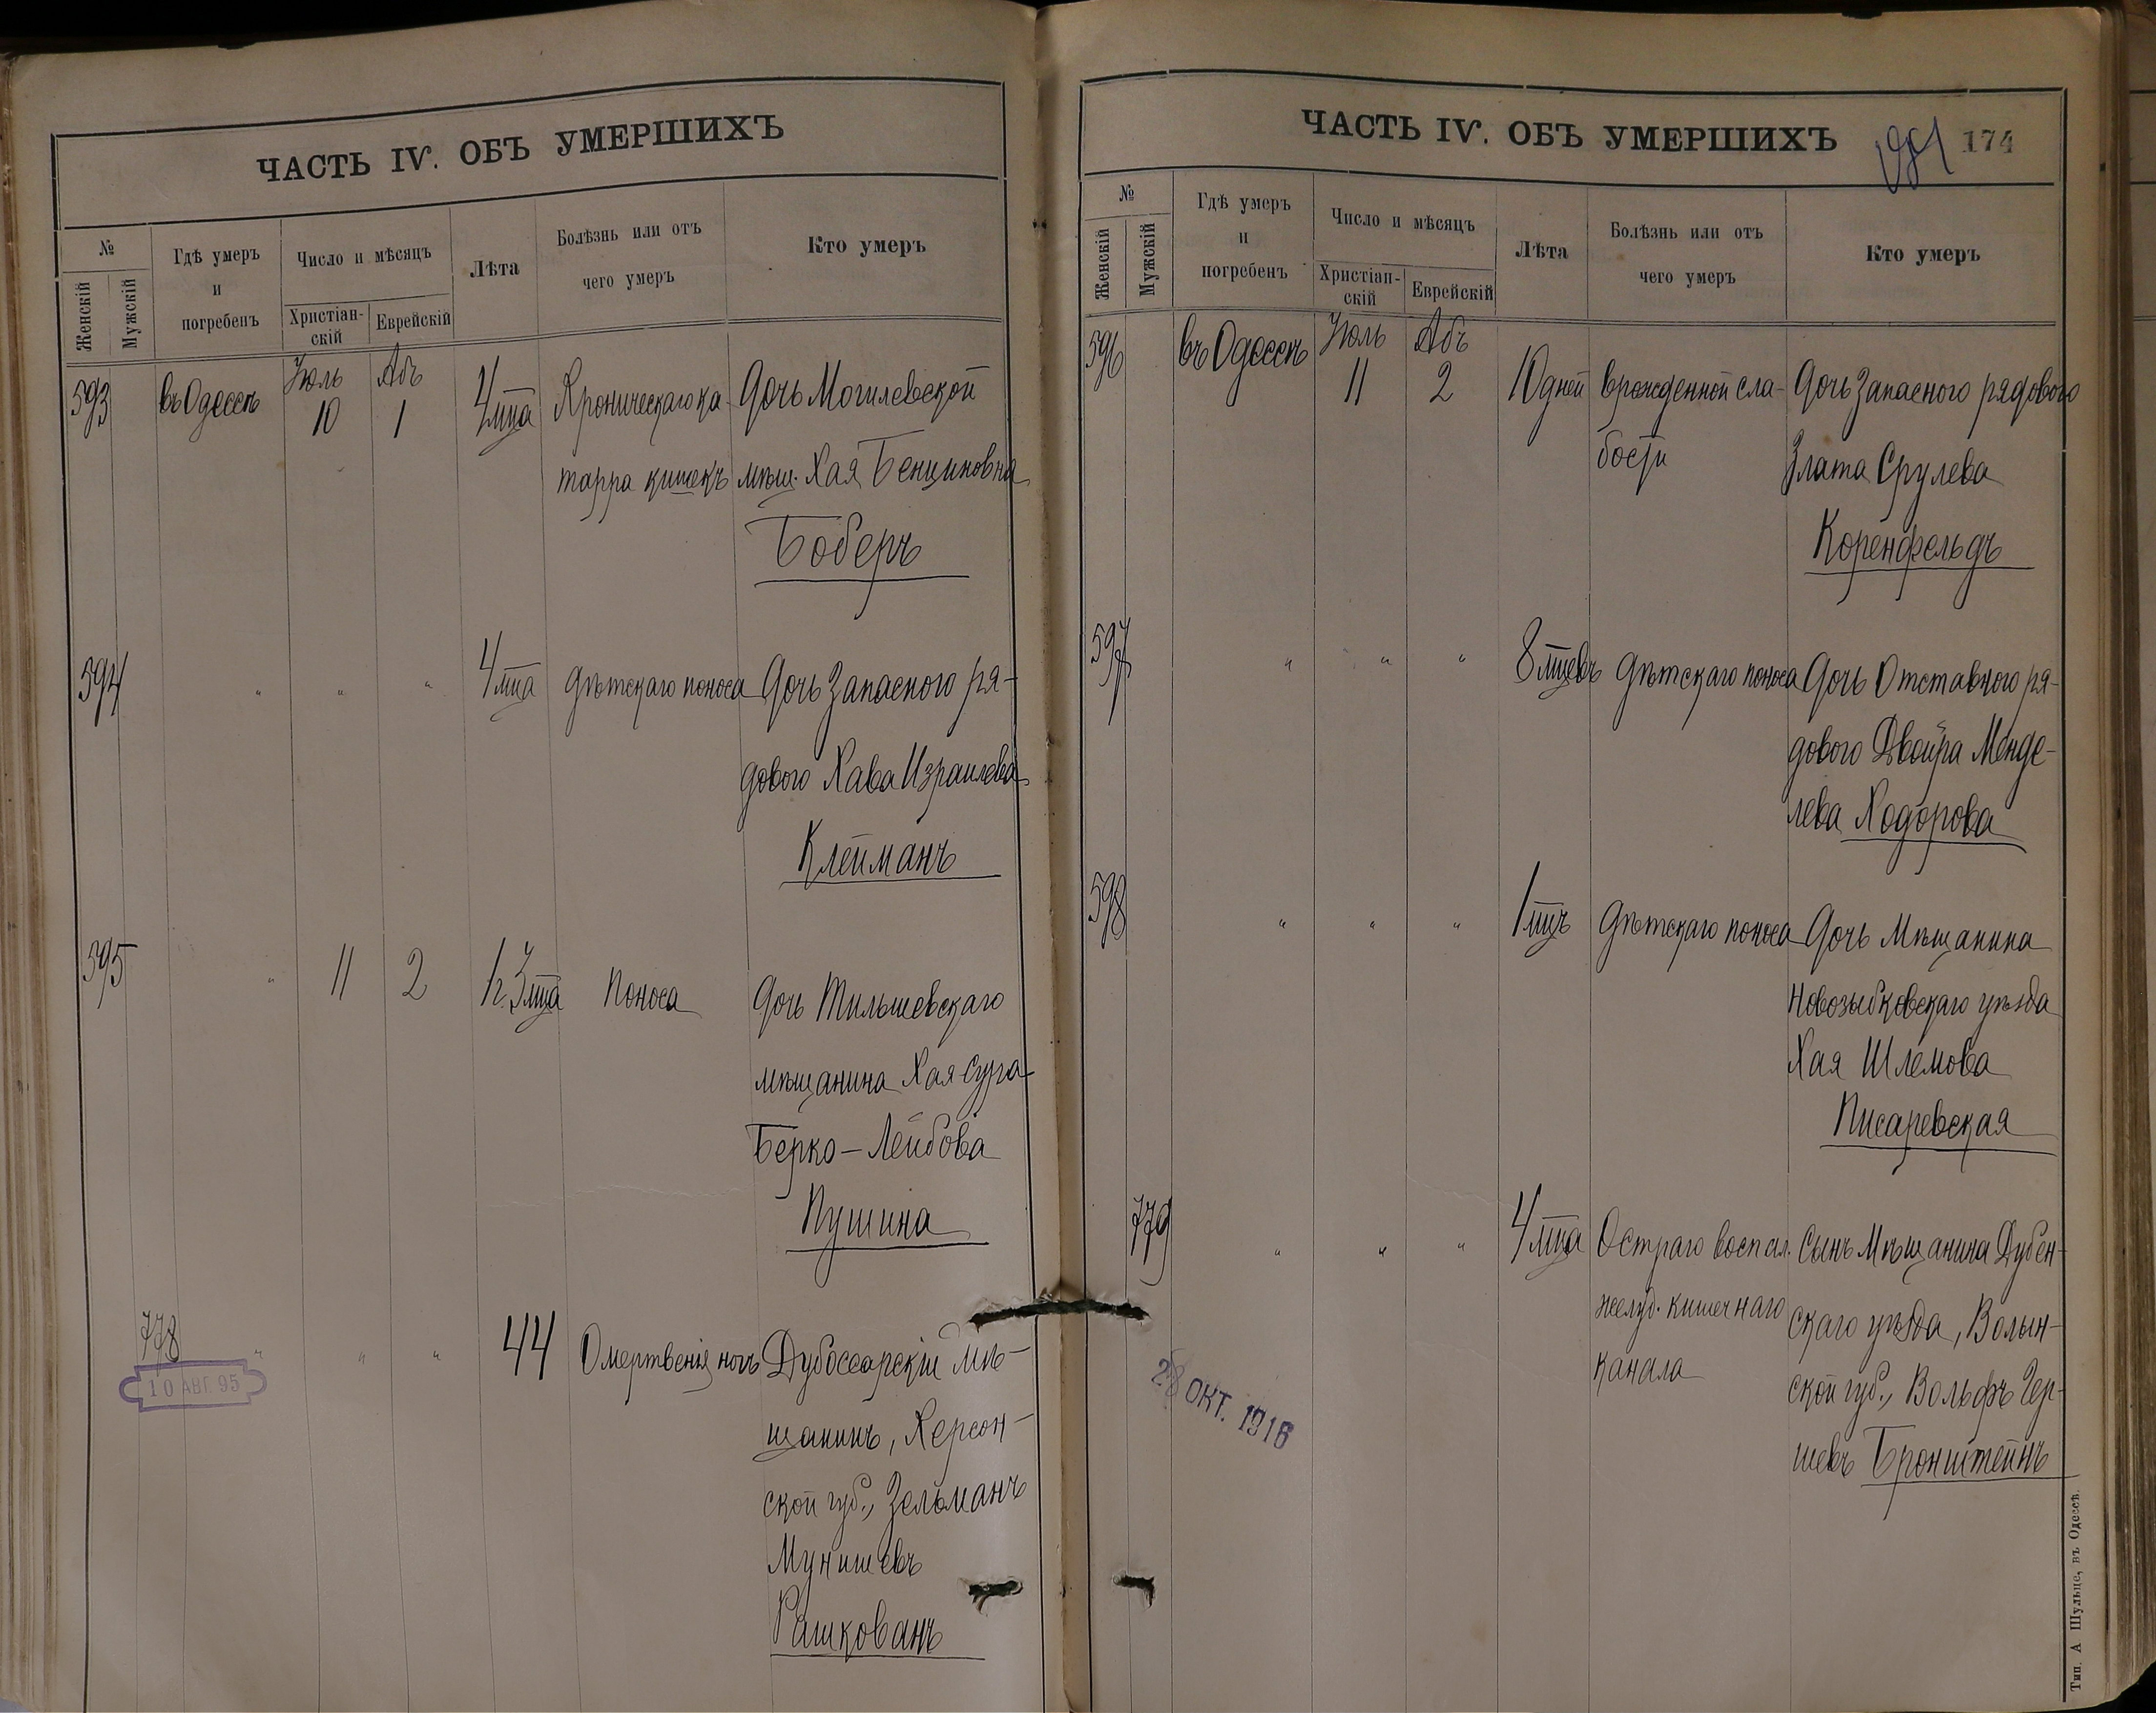 ЧАСТЬ IV. ОБЪ УМЕРШИХЪ
№
Женскій
Мужскій
Гдѣ умеръ
и
погребенъ
Число и мѣсяцъ
Христіан-
скій
Еврейскій
Лѣта
Болѣзнь или отъ
чего умеръ
Кто умеръ
593
въ Одессѣ
Июль
10
Абъ
1
4 мца
Хроническаго ка-
тарра кишекъ
Дочь Могилевской
мѣщ. Хая Бенционовна
Боберъ
594
" " "
4 мца
Дѣтскаго поноса
Дочь Запасного ря-
дового Хава Израилева
Клейманъ
595
"
11
2
1 г. 3 мца
Поноса
Дочь
мѣщанина Хая Сура
Берко-Лейбова
Пушина
778
10 АВГ. 95
" " "
44
Омертвенія ногъ
Дубоссарскій мѣ-
щанинъ, Херсон-
ской губ., Зельманъ
Мунишевъ
Рашкованъ
ЧАСТЬ IV. ОБЪ УМЕРШИХЪ
174
№
Женскій
Мужскій
Гдѣ умеръ
и
погребенъ
Число и мѣсяцъ
Христіан-
скій
Еврейскій
Лѣта
Болѣзнь или отъ
чего умеръ
Кто умеръ
596
въ Одессѣ
Июль
11
Абъ
2
10 дней
врожденной сла-
бости
Дочь Запасного рядового
Злата Срулева
Коренфельдъ
597
" " "
8 мцевъ
Дѣтскаго поноса
Дочь Отставного ря-
дового Двойра Менде-
лева Ходорова
598
" " "
1 мцъ
Дѣтскаго поноса
Дочь Мѣщанина
Новозыбковскаго уѣзда
Хая Шлемова
Писаревская
779
" " "
4 мца
Остраго воспал.
желуд. кишечнаго
канала
Сынъ Мѣщанина Дубен-
скаго уѣзда, Волын-
ской губ., Вольфъ Гер-
шевъ Бронштейнъ
28 ОКТ. 1916
Тип. А Шульце, въ Одессѣ.